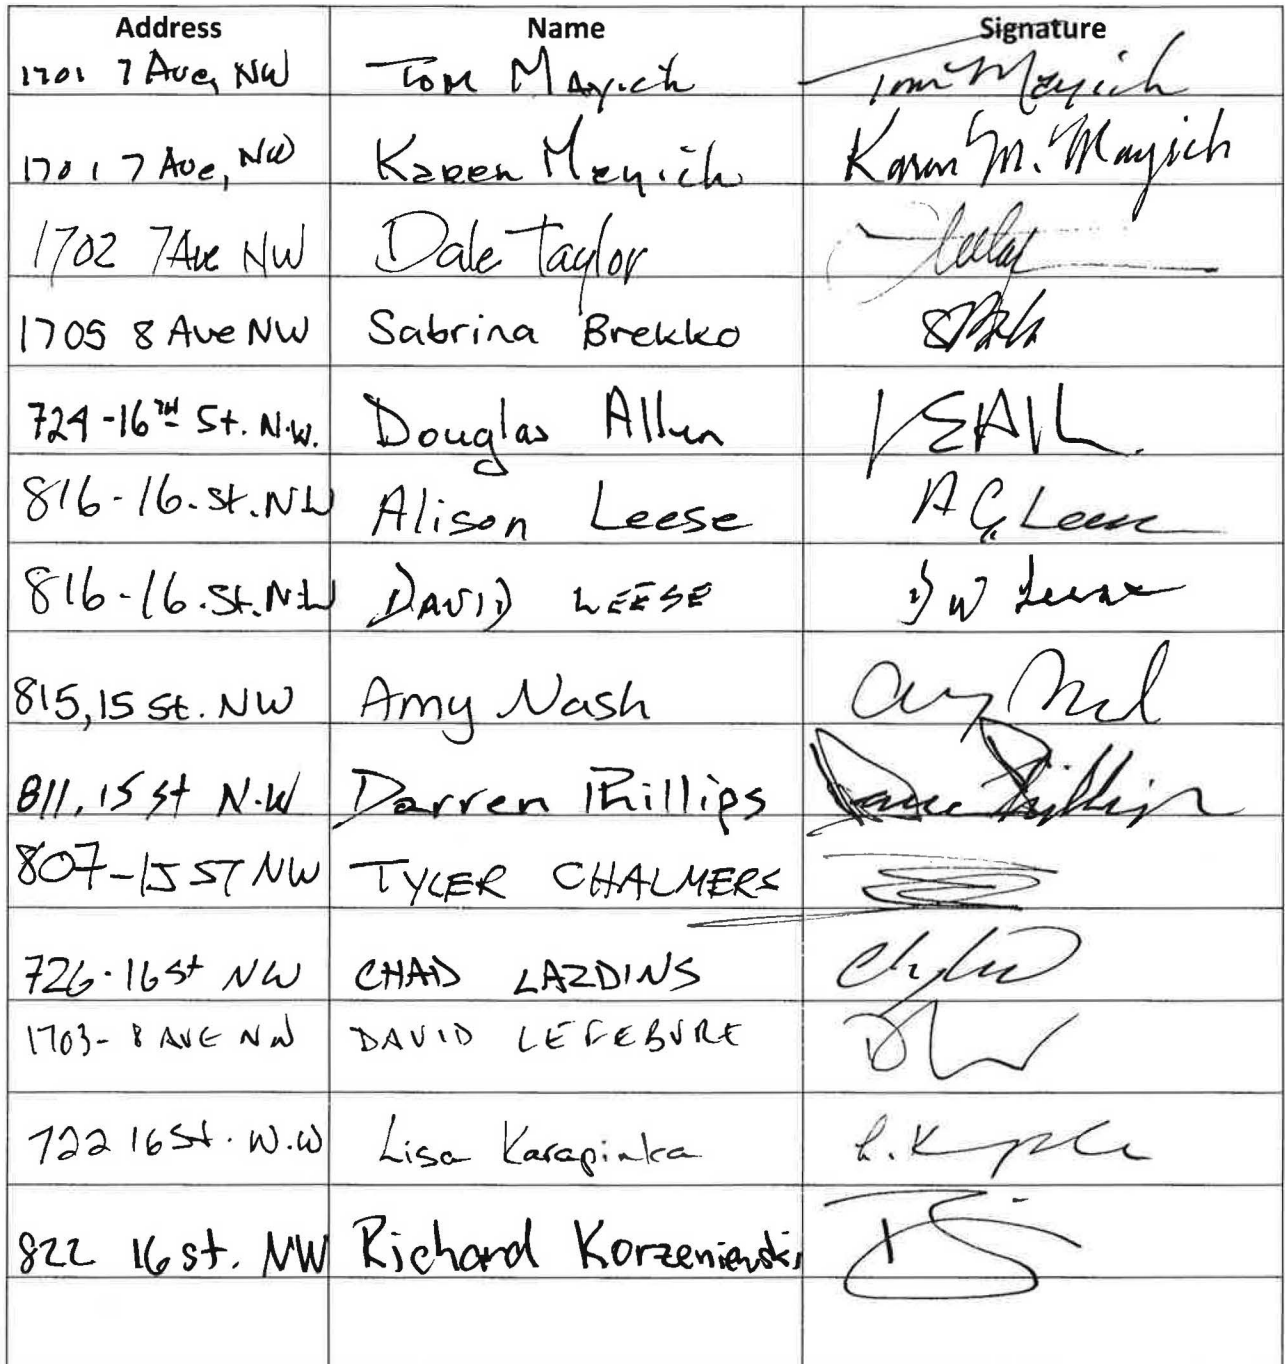 Address Name Signature
1701 7 Ave, NW Tom Mayich Tom Mayich
1701 7 Ave, NW Karen Mayich Karen M. Mayich
1702 7 Ave NW Dale Taylor
1705 8 Ave NW Sabrina Brekko
724-16TH St. N.W. Douglas Allen
816-16.St.NW Alison Leese A C Leese
816-16.St.NW DAVID LEESE D W Leese
815, 15 St. NW Amy Nash Amy
811, 15 St N.W Darren Phillips Phillips
807-15 ST NW TYLER CHALMERS
726-16 St NW CHAD LAZDINS
1703- 8 AVE NW DAVID LEFEBVRE
722 16 St. N.W Lisa Karapinka L. K
822 16 St. NW Richard Korzeniewski